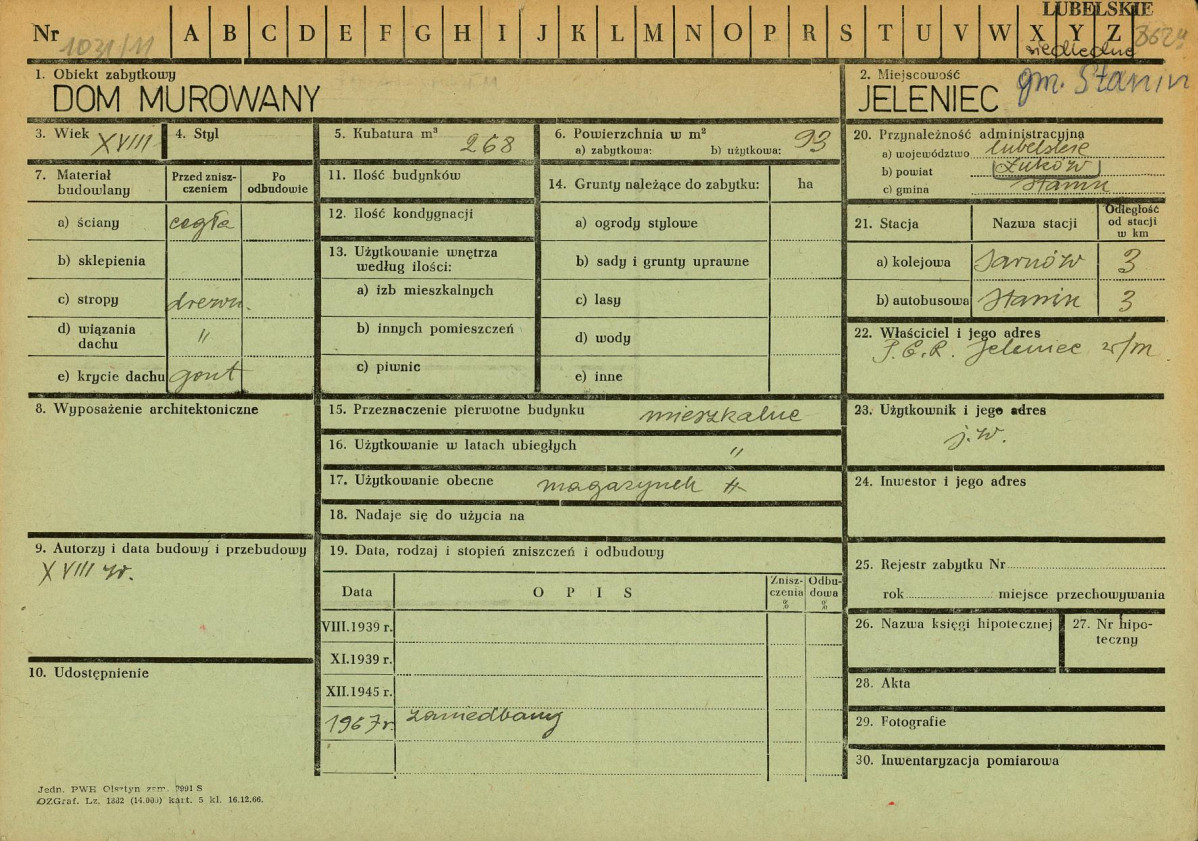 LUBELSKIE
Nr 1031/11 A B C D E F G H I J K L M N O P R S T U V W X Y Z
siedleckie
1. Obiekt zabytkowy
DOM MUROWANY
2. Miejscowość
JELENIEC gm. Stanin
3. Wiek XVIII
4. Styl
5. Kubatura m³ 268
6. Powierzchnia w m² 93
a) zabytkowa: b) użytkowa:
7. Materiał budowlany
Przed zniszczeniem
Po odbudowie
a) ściany cegła
b) sklepienia
c) stropy drewn.
d) wiązania dachu "
e) krycie dachu gont
8. Wyposażenie architektoniczne
9. Autorzy i data budowy i przebudowy
XVIII w.
10. Udostępnienie
11. Ilość budynków
12. Ilość kondygnacji
13. Użytkowanie wnętrza według ilości:
a) izb mieszkalnych
b) innych pomieszczeń
c) piwnic
14. Grunty należące do zabytku: ha
a) ogrody stylowe
b) sady i grunty uprawne
c) lasy
d) wody
e) inne
15. Przeznaczenie pierwotne budynku mieszkalne
16. Użytkowanie w latach ubiegłych "
17. Użytkowanie obecne magazynek
18. Nadaje się do użycia na
19. Data, rodzaj i stopień zniszczeń i odbudowy
Data OPIS Zniszczenia % Odbudowa %
VIII.1939 r.
XI.1939 r.
XII.1945 r.
1967 r. zaniedbany
20. Przynależność administracyjna
a) województwo lubelskie
b) powiat Łuków
c) gmina Stanin
21. Stacja Nazwa stacji Odległość od stacji w km
a) kolejowa Sarnów 3
b) autobusowa Stanin 3
22. Właściciel i jego adres
P.G.R. Jeleniec w/m
23. Użytkownik i jego adres
j.w.
24. Inwestor i jego adres
25. Rejestr zabytku Nr
rok miejsce przechowywania
26. Nazwa księgi hipotecznej
27. Nr hipoteczny
28. Akta
29. Fotografie
30. Inwentaryzacja pomiarowa
Jedn. PWE Olsztyn zam. 2991 S
OZGraf. Lz. 1332 (14.000) kart. 5 kl. 16.12.66.